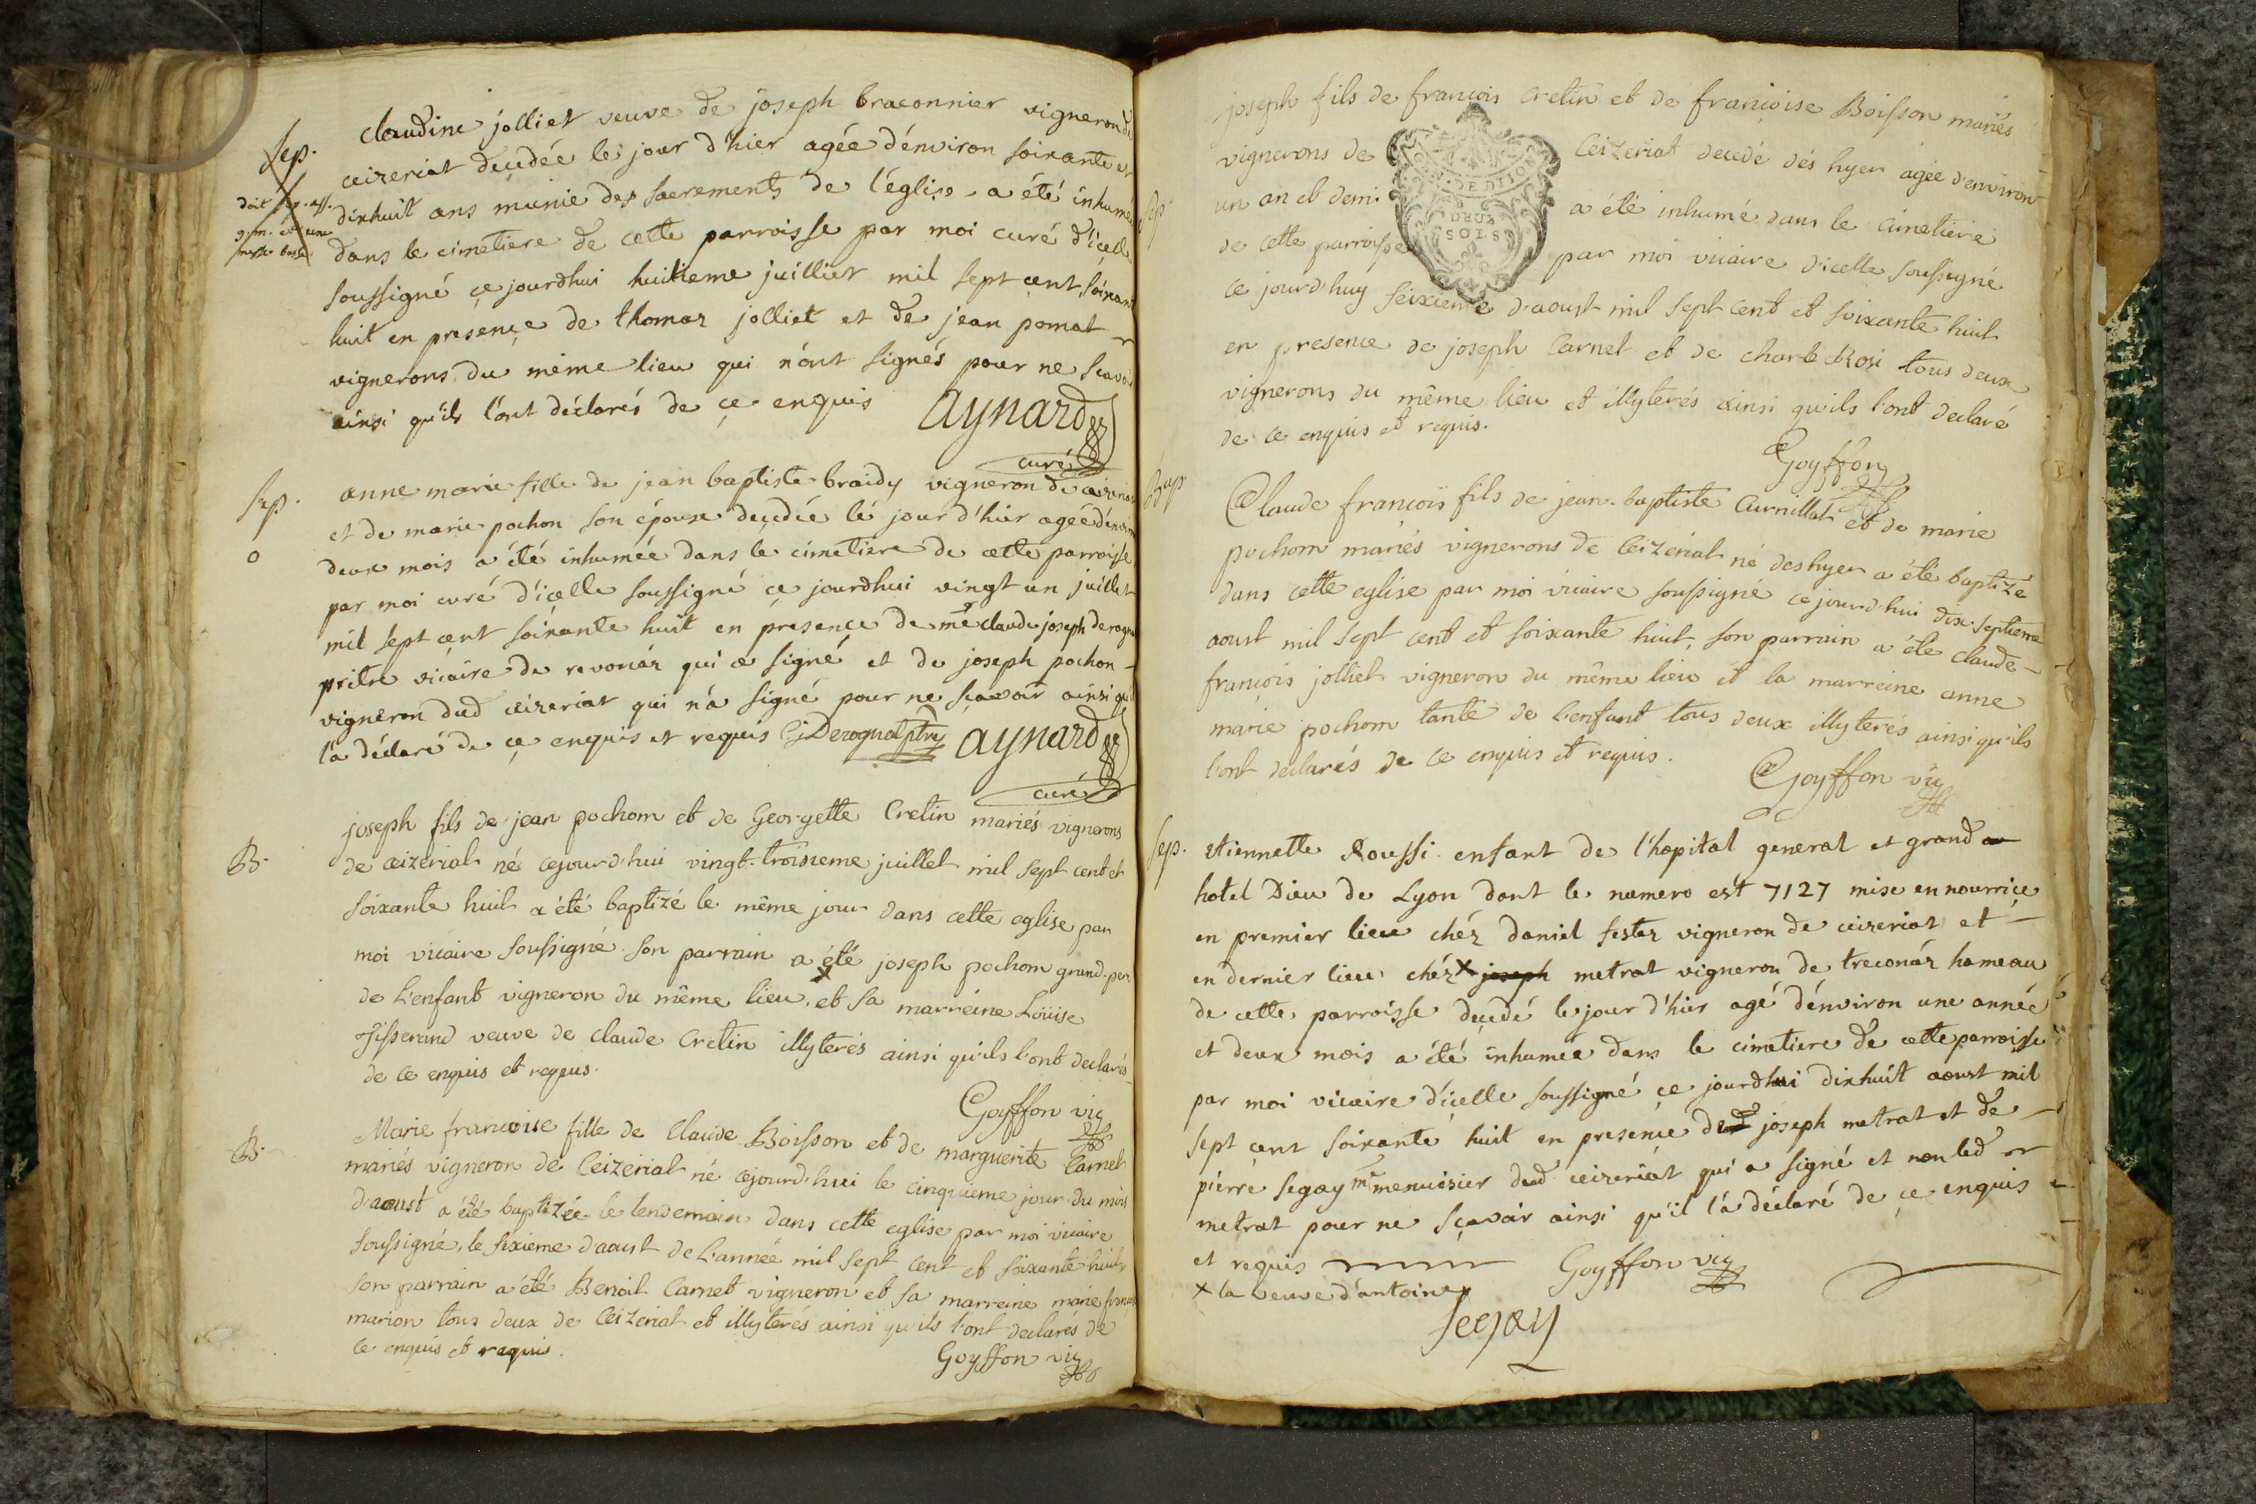 Sep.
doit sep. ass.
g. m. et une
messe basse
claudine jolliet veuve de joseph braconnier vigneron de
ceizeriat decedée le jour d'hier agée d'énviron soixante et
dixhuit ans munie des sacrements de l'église a été inhumée
dans le cimetiere de cette parroisse par moi curé d'icelle
soussigné ce jourdhui huitieme juilliet mil sept cent soixante
huit en présençe de thomas jolliet et de jean pomat
vignerons du même lieu qui n'ont signés pour ne scavoir
ainsi qu'ils l'ont déclarés de çe enquis aynard
curé
Sep.
o
anne marie fille de jean baptiste braidy vigneron de ceizeriat
et de marie pochon son épouse decedée lé jour d'hier agée d'environ
deux mois a été inhumée dans le cimetiere de cette parroisse
par moi curé d'icelle soussigné ce jourdhui vingt un juillet
mil sept cent soixante huit en présençe de mre claude joseph derognat
prêtre vicaire de revonáz qui a signé et de joseph pochon
vigneron dud ceizeriat qui n'a signé pour ne sçavoir ainsi qu'il
l'a déclaré de çe enquis et requis Derognat ptre aynard
curé
B.
joseph fils de jean pochom et de Georgette Cretin mariés vignerons
de ceizeriat né cejourd'hui vingt-troisieme juillet mil sept cent et
soixante huit a été baptizé le même jour dans cette eglise par
moi vicaire soussigné son parrain a été joseph pochom grand-pere
de l'enfant vigneron du même lieu, et sa marreine Louise
Tisserand veuve de claude Cretin illyterés ainsi qu'ils l'ont declarés
de ce enquis et requis.
Goyffon vic
B.
Marie francoise fille de Claude Boisson et de marguerite Carnet
mariés vigneron de Ceizeriat né cejourd'hui le cinquieme jour du mois
d'aoust a été baptizée le lendemain dans cette eglise par moi vicaire
soussigné, le sixieme d'aoust de l'année mil sept cent et soixante huit
son parrain a été Benoit Carnet vigneron et sa marreine marie francoise
marion tous deux de Ceizeriat et illyterés ainsi qu'ils l'ont declarés de
ce enquis et requis.
Goyffon vic
Sep.
joseph fils de francois cretin et de francoise Boisson mariés
vignerons de Ceizeriat decedé dés hyer agée d'environ
un an et demi a été inhumé dans le cimetiere
de cette parroisse par moi vicaire d'icelle soussigné
ce jourd'huy seixieme d'aoust mil sept cent et soixante huit
en presence de joseph Carnet et de charle Rosi tous deux
vignerons du même lieu et illyterés ainsi qu'ils l'ont declaré
de ce enquis et requis.
Goyffon
DE DIJON
DEUX
SOLS
Bap
Claude francois fils de jean-baptiste Curnillat et de marie
pochom mariés vignerons de Ceizeriat né deshyer a été baptizé
dans cette eglise par moi vicaire soussigné ce jourd'hui dix-septieme
aoust mil sept cent et soixante huit, son parrain a été claude-
françois jolliet vigneron du même lieu et la marreine anne
marie pochom tante de l'enfant tous deux illyterés ainsi qu'ils
l'ont declarés de ce enquis et requis.
Goyffon vic
Sep.
etiennette Roussi enfant de l'hopital general et grand
hotel Dieu de Lyon dont le numero est 7127 mise en nourrice
en premier lieu chéz daniel festaz vigneron de ceizeriat et
en dernier lieu chéz x joseph metrat vigneron de treconáz hameau
de cette parroisse decedé le jour d'hier agé d'énviron une année
et deux mois a été inhumée dans le cimetiere de cette parroisse
par moi vicaire d'icelle soussigné çe jourdhui dixhuit aoust mil
sept cent soixante huit en presençe de joseph metrat et de
pierre segay mre menuisier dud ceizeriat qui a signé et non led
metrat pour ne sçavoir ainsi qu'il l'a déclaré de çe enquis
et requis Goyffon vic
x la veuve d'antoine
Segay